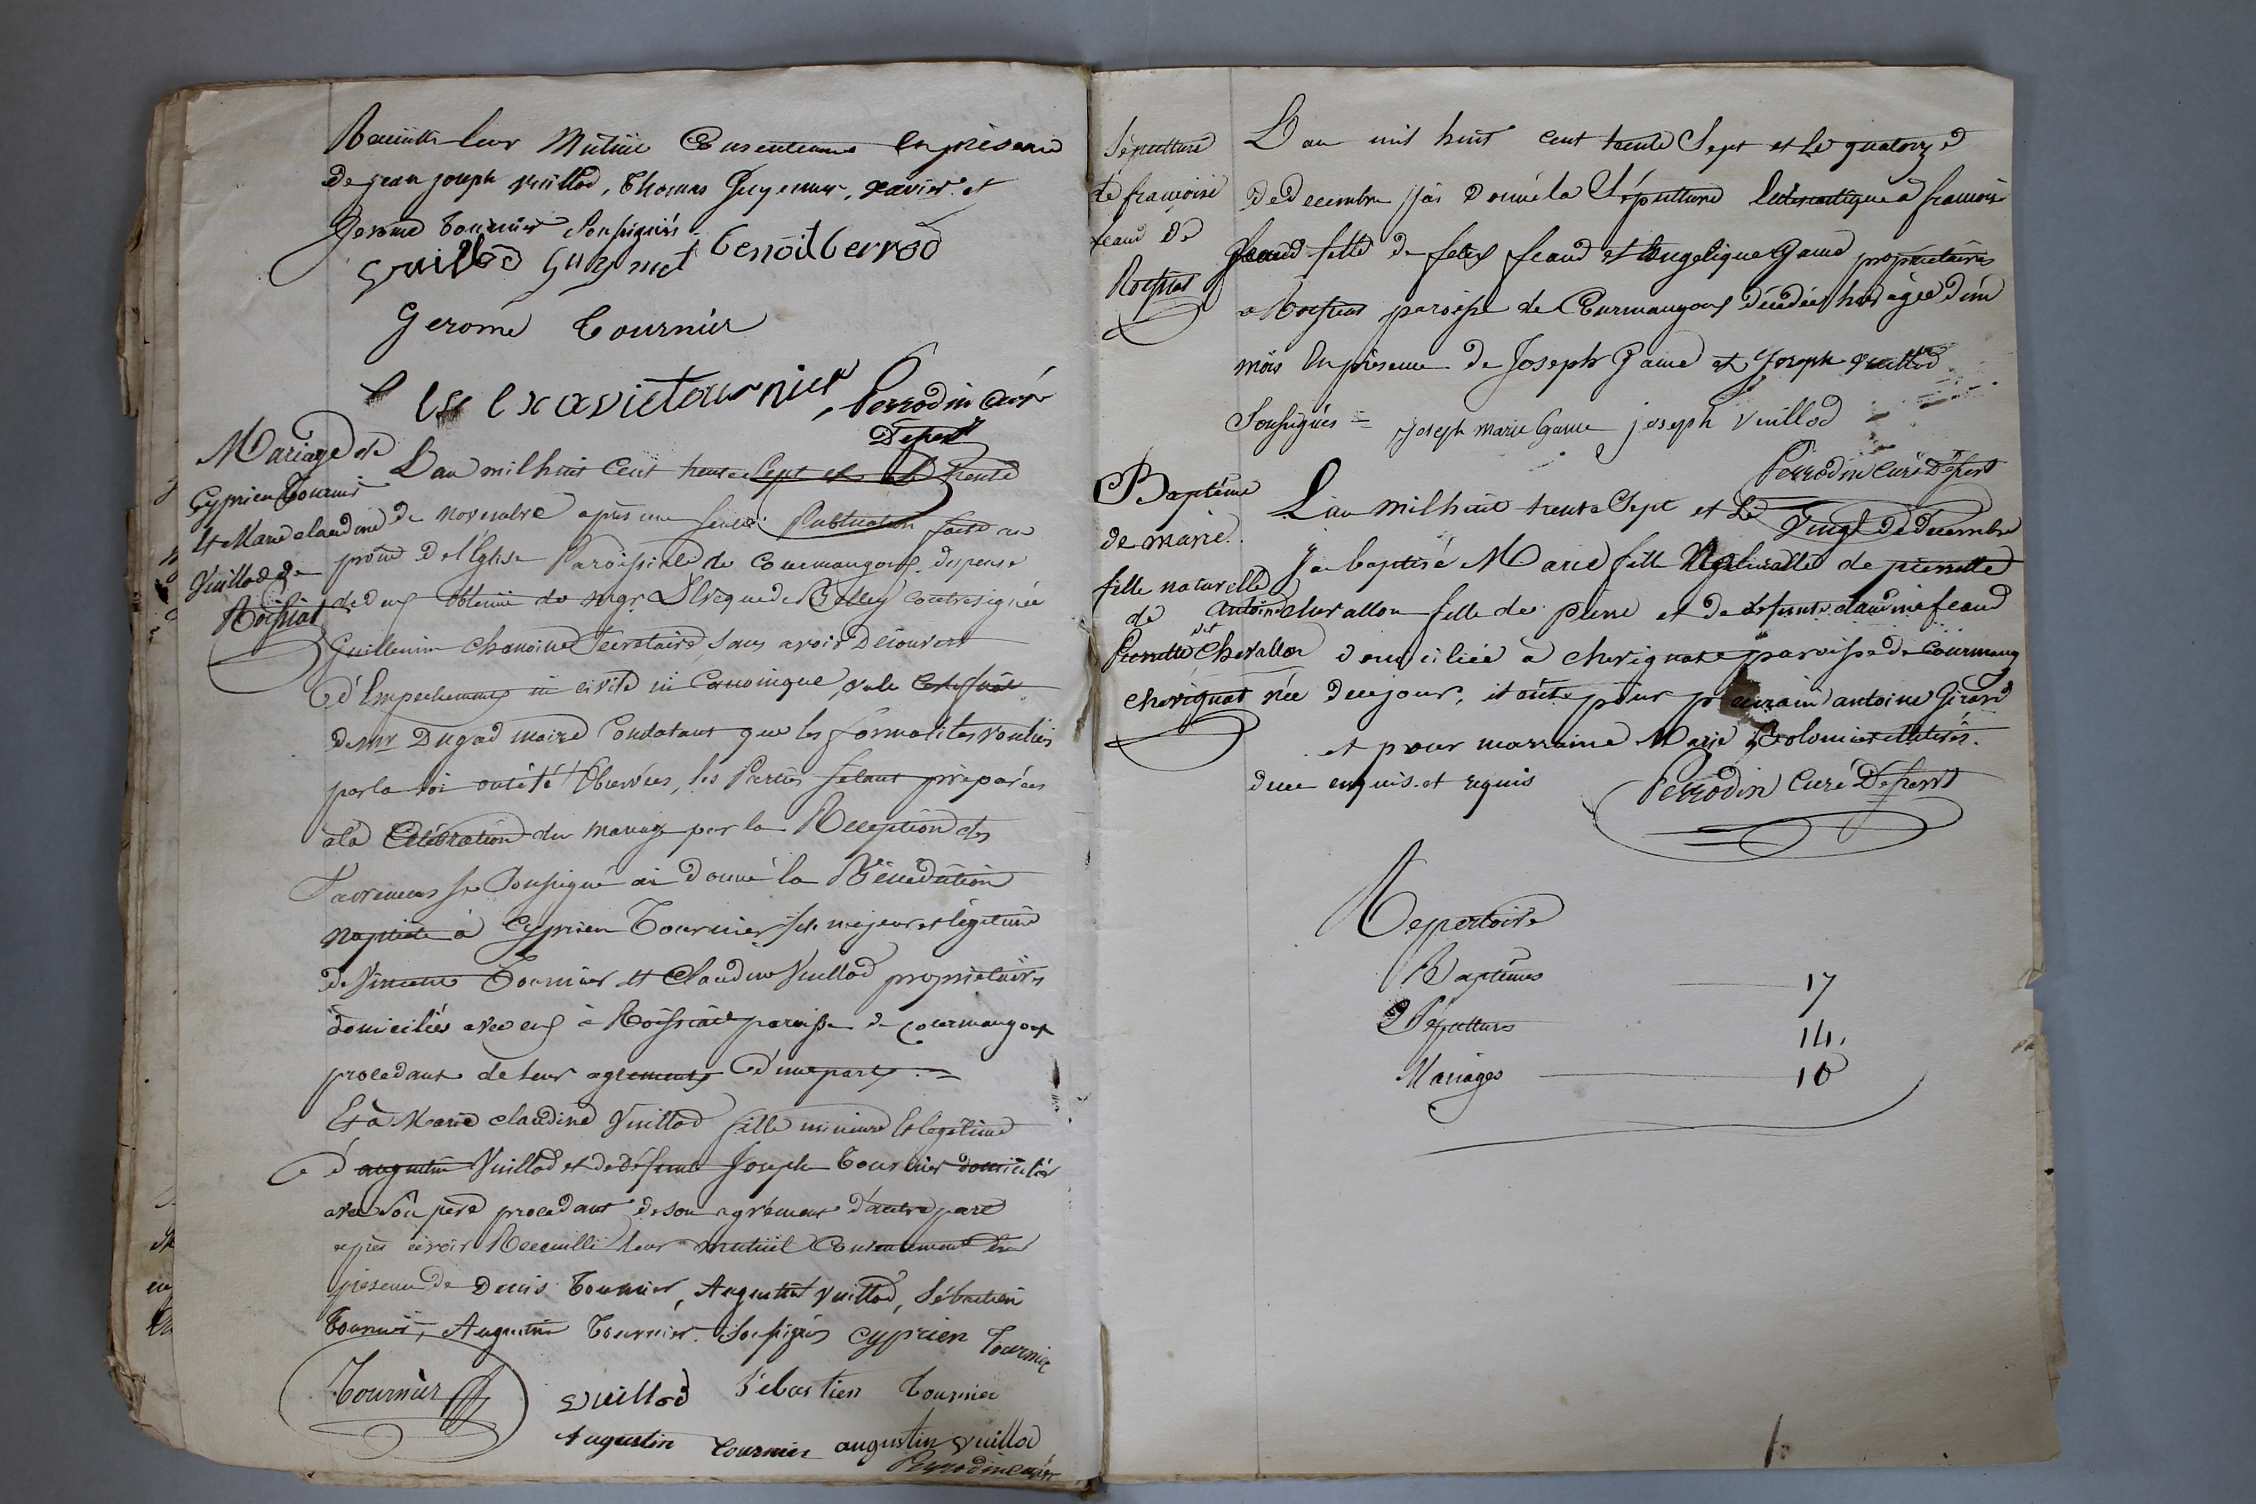 Recueilli leur Mutuel Consentement en présence
de jean joseph vuillod, Thomas Guyenet, xavier et
Gerome Tournier Soussignés
vuillod guyenet benoit berrod
Gerome Tournier
xavie tournier Perrodin Curé
Desst
Mariage de
Cyprien Tournier
et Marie claudine
Vuillod de
Roissiat
L'an mil huit Cent trente Sept et le trente
de novembre après une seule Publication faite au
prône de l'Eglise Paroissiale de Courmangoux, dispense
de deux obtenue de mgr L'Evêque de Belley contresignée
Guillemin chanoine Secretaire, Sans avoir Découvert
d'Empechement ni civile ni Canonique, vu le Certificat
de mr Dugad maire Constatant que les formalites voulues
par la loi ont été Observées, les Parties s'étant préparées
à la Célébration du mariage par la Réception des
Sacremens je Soussigné ai donné la Bénédiction
Nuptiale à Cyprien Tournier fils majeur et légitime
de Vincent Tournier et Claudine Vuillod propriétaires
domiciliés avec eux à Roissiat paroisse de Courmangoux
procedant de leur agrement d'une part =
Et à Marie claudine Vuillod fille mineure et légitime
d'augustin Vuillod et de Défunte Joseph Tournier domiciliée
avec Son père procedant de son agrément d'autre part
après avoir Recueilli leur mutuel Consentement En
présence de Denis Tournier, Augustin Vuillod, Sébastien
Tournier, Augustin Tournier Soussignés cyprien Tournier
Tournier vuillod Sebastien Tournier
Augustin Tournier augustin vuillod
Perrodin curé
Sépulture
de francoise
feaud de
Roissiat
L'an mil huit cent trente Sept et Le quatorze
de Decembre j'ai donné la Sépulture Ecclesiastique a francoise
feaud fille de felix feaud et Angelique Game propriétaires
a Roissiat paroisse de Curmangoux décédée hier agée d'un
mois En présence de Joseph Game et Joseph vuillod
Soussignés = joseph marie Game joseph vuillod
Perrodin Curé Desst
Baptême
de marie
fille naturelle
de
Pierrette Chevallon
cheviguat
L'an mil huit trente Sept et Le Vingt de Decembre
J'ai baptisé Marie fille Naturelle de pierrette
antoinette chevallon fille de pierre et de defunte claudine feaud
domiciliée à chevignat paroisse de Courmang
née de ce jour, il a été pour parrain antoine Girard
et pour marraine Marie Bolomier illitérés
de ce enquis et requis Perrodin Curé Dessert
Repertoire
Baptêmes 17
Sépultures 14.
Mariages 10